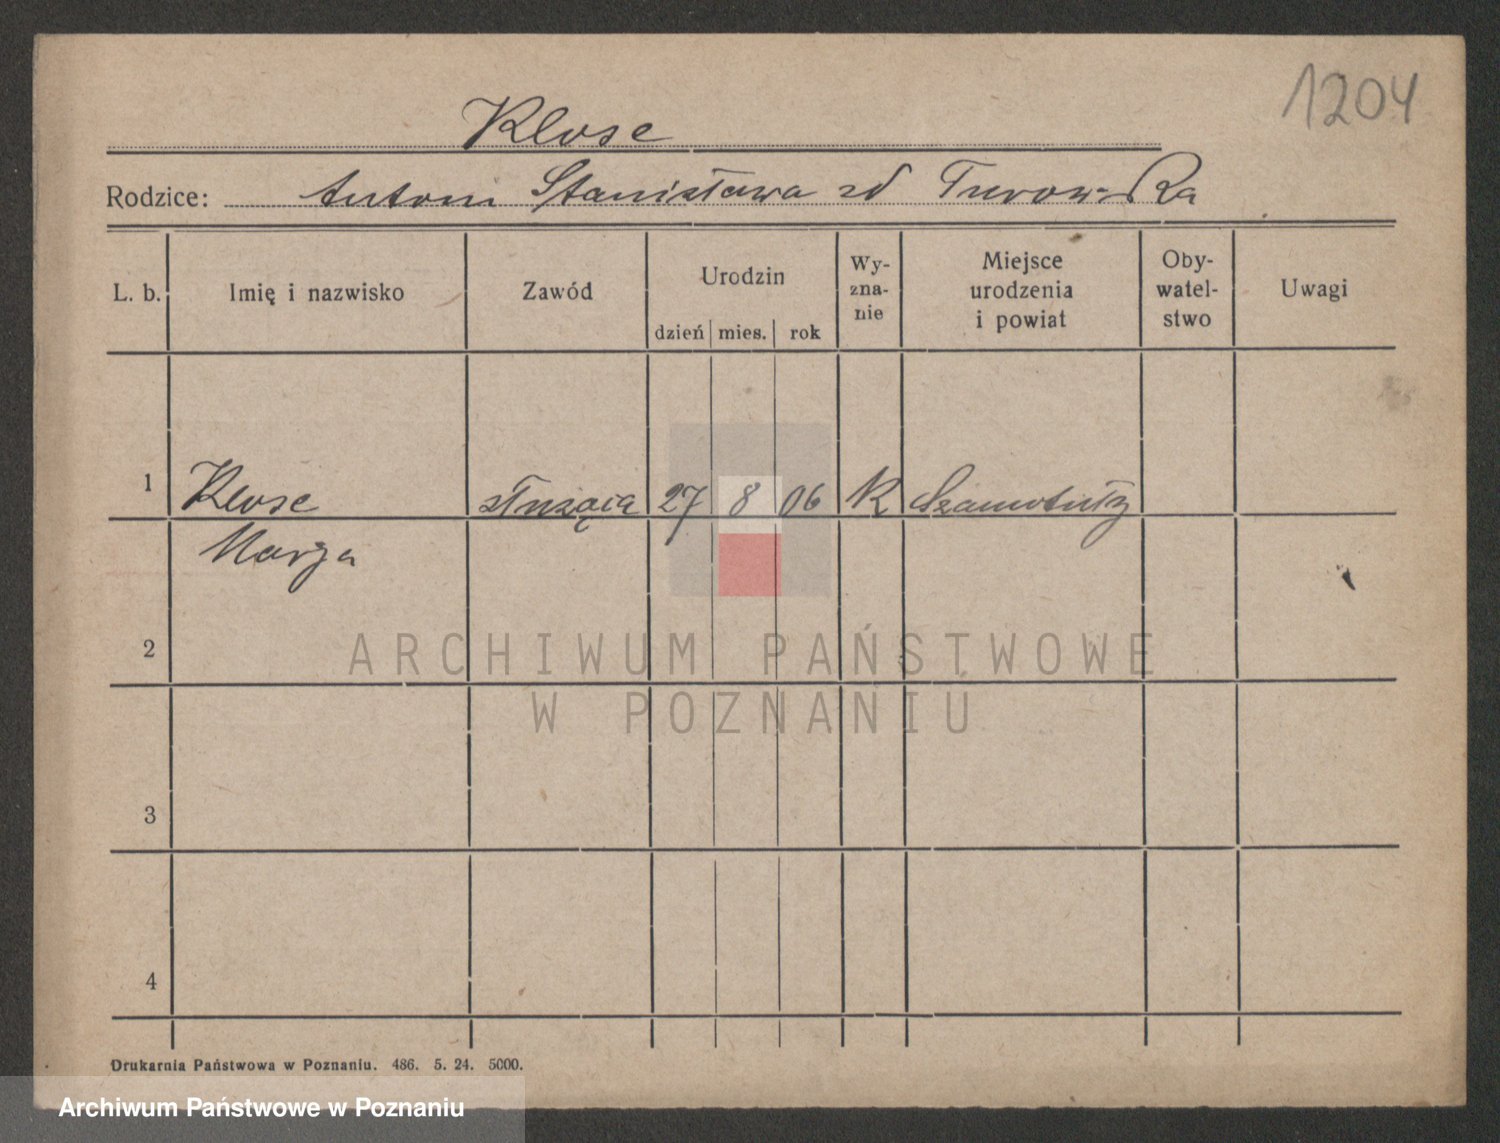 1204
Klose
Rodzice: Antoni Stanisława zd Turowska
L. b.
Imię i nazwisko
Zawód
Urodzin
dzień mies. rok
Wy-
zna-
nie
Miejsce
urodzenia
i powiat
Oby-
watel-
stwo
Uwagi
1 Klose służąca 27 8 06 K Szamotuły
Marja
2
ARCHIWUM PAŃSTWOWE
W POZNANIU
3
4
Drukarnia Państwowa w Poznaniu. 486. 5. 24. 5000.
Archiwum Państwowe w Poznaniu